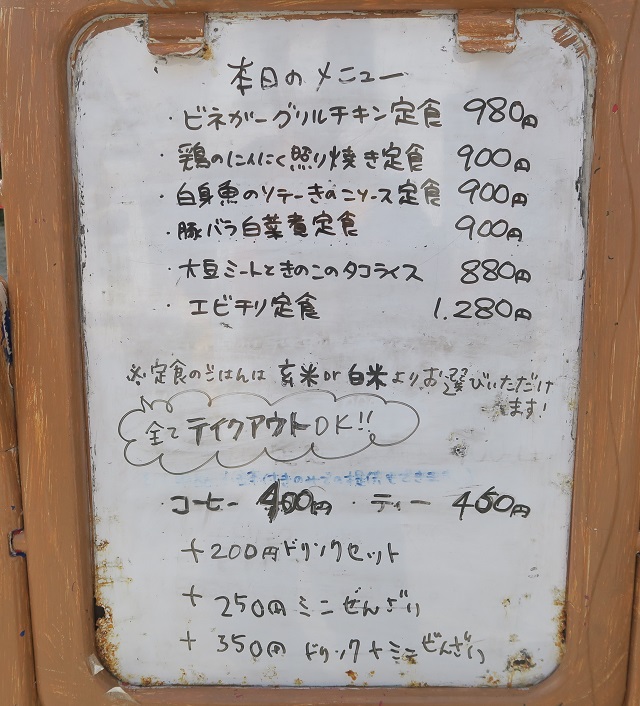 本日のメニュー
・ビネガーグリルチキン定食 980円
・鶏のにんにく照り焼き定食 900円
・白身魚のソテーきのこソース定食 900円
・豚バラ白菜煮定食 900円
・大豆ミートときのこのタコライス 880円
・エビチリ定食 1.280円
※定食のごはんは 玄米or白米よりお選びいただけ
ます!
全てテイクアウトOK!!
・コーヒー 400円 ・ティー 460円
+200円ドリンクセット
+250円ミニぜんざい
+350円 ドリンク+ミニぜんざい